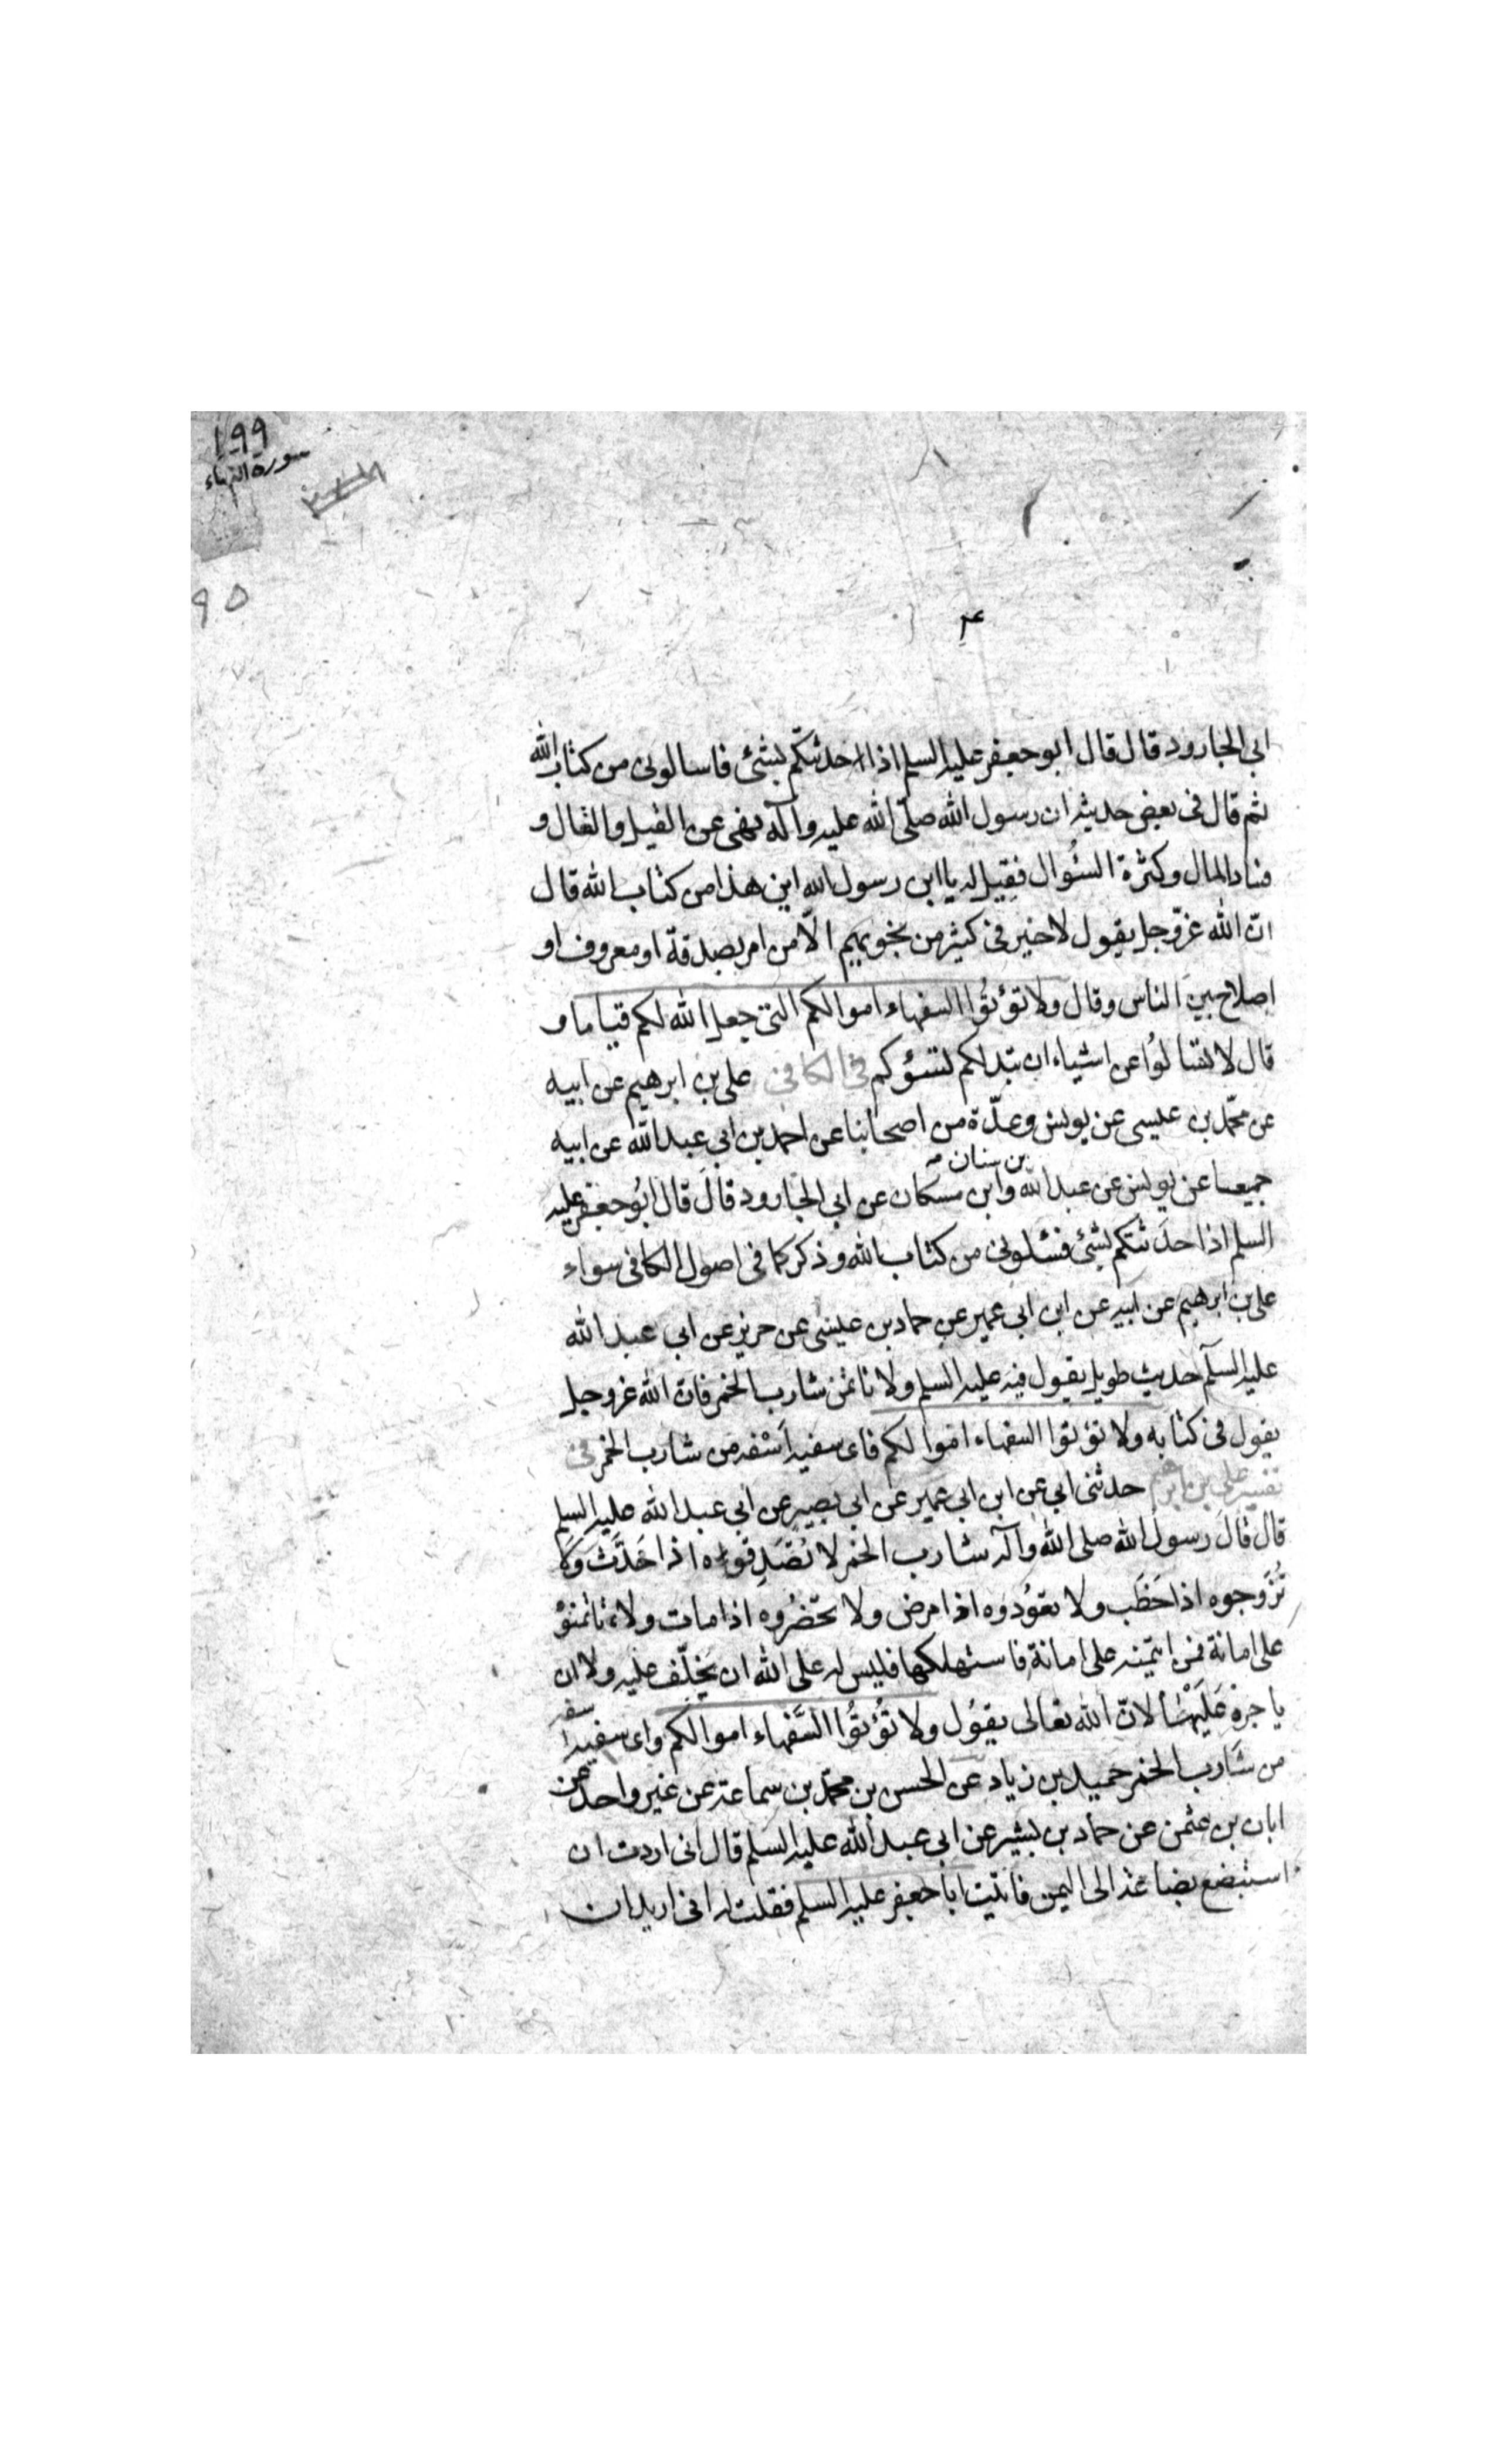 ١٩٩
سورة النساء
٩٥
ابى الجارود قال قال ابو جعفر عليه السلم اذا احدثتكم بشئ فاسالونى من كتاب الله
ثم قال فى بعض حديثه ان رسول الله صلّى الله عليه وآله نهى عن القيل والقال و
فساد المال وكثرة السُوال فقيل له يا ابن رسول الله اين هذا من كتاب الله قال
انّ الله عزّوجل يقول لا خير فى كثير من نجويهم الّا من امر بصدقة او معروف او
اصلاح بين الناس وقال ولا تؤتُوا السفهاء اموالكم التى جعل الله لكم قياما و
قال لا تسالوُا عن اشياء ان تبد لكم تسؤكم فى الكافى على بن ابرهيم عن ابيه
عن محمّد بن عيسى عن يونس وعدّة من اصحابنا عن احمد بن ابى عبد الله عن ابيه
جميعا عن يونس عن عبد الله بن سنان وابن مسكان عن ابى الجارود قال قال ابُو جعفر عليه
السلم اذا حدثتكم بشئ فسئلونى من كتاب الله وذكر كما فى اصول الكافى سواء
على بن ابرهيم عن ابيه عن ابن ابى عمير عن حماد بن عيسى عن حريز عن ابى عبد الله
عليه السلم حديث طويل يقول فيه عليه السلم ولا تاتمن شارب الخمر فانّ الله عزوجل
يقول فى كتابه ولا تؤتوا السفهاء اموالكم فاى سفيه اسفه من شارب الخمر فى
تفسير على بن ابرهيم حدثنى ابى عن ابن ابى عمير عن ابى بصير عن ابى عبد الله عليه السلم
قال قال رسول الله صلى الله وآله شارب الخمر لا تُصَدِقوه اذا حَدَّثَ ولا
تُزَوجوه اذا خَطَب ولا تعوُدوه اذا مرض ولا تحضُروه اذا مات ولا تاتمنوُه
على امانة فمن ائتمنه على امانة فاستهلكها فليس له على الله ان يخلّف عليه ولا ان
ياجره عَلَيْها لانّ الله تعالى يقوُل ولا تُؤتُوا السَّفهاء اموالكم واى سفيه اسفه
من شارب الخمر حميد بن زياد عن الحسن بن محمّد بن سماعة عن غير واحد عن
ابان بن عثمن عن حماد بن بشير عن ابى عبد الله عليه السلم قال انى اردت ان
استبضع بضاعة الى اليمن فاتيت ابا جعفر عليه السلم فقلت له انى اريد ان